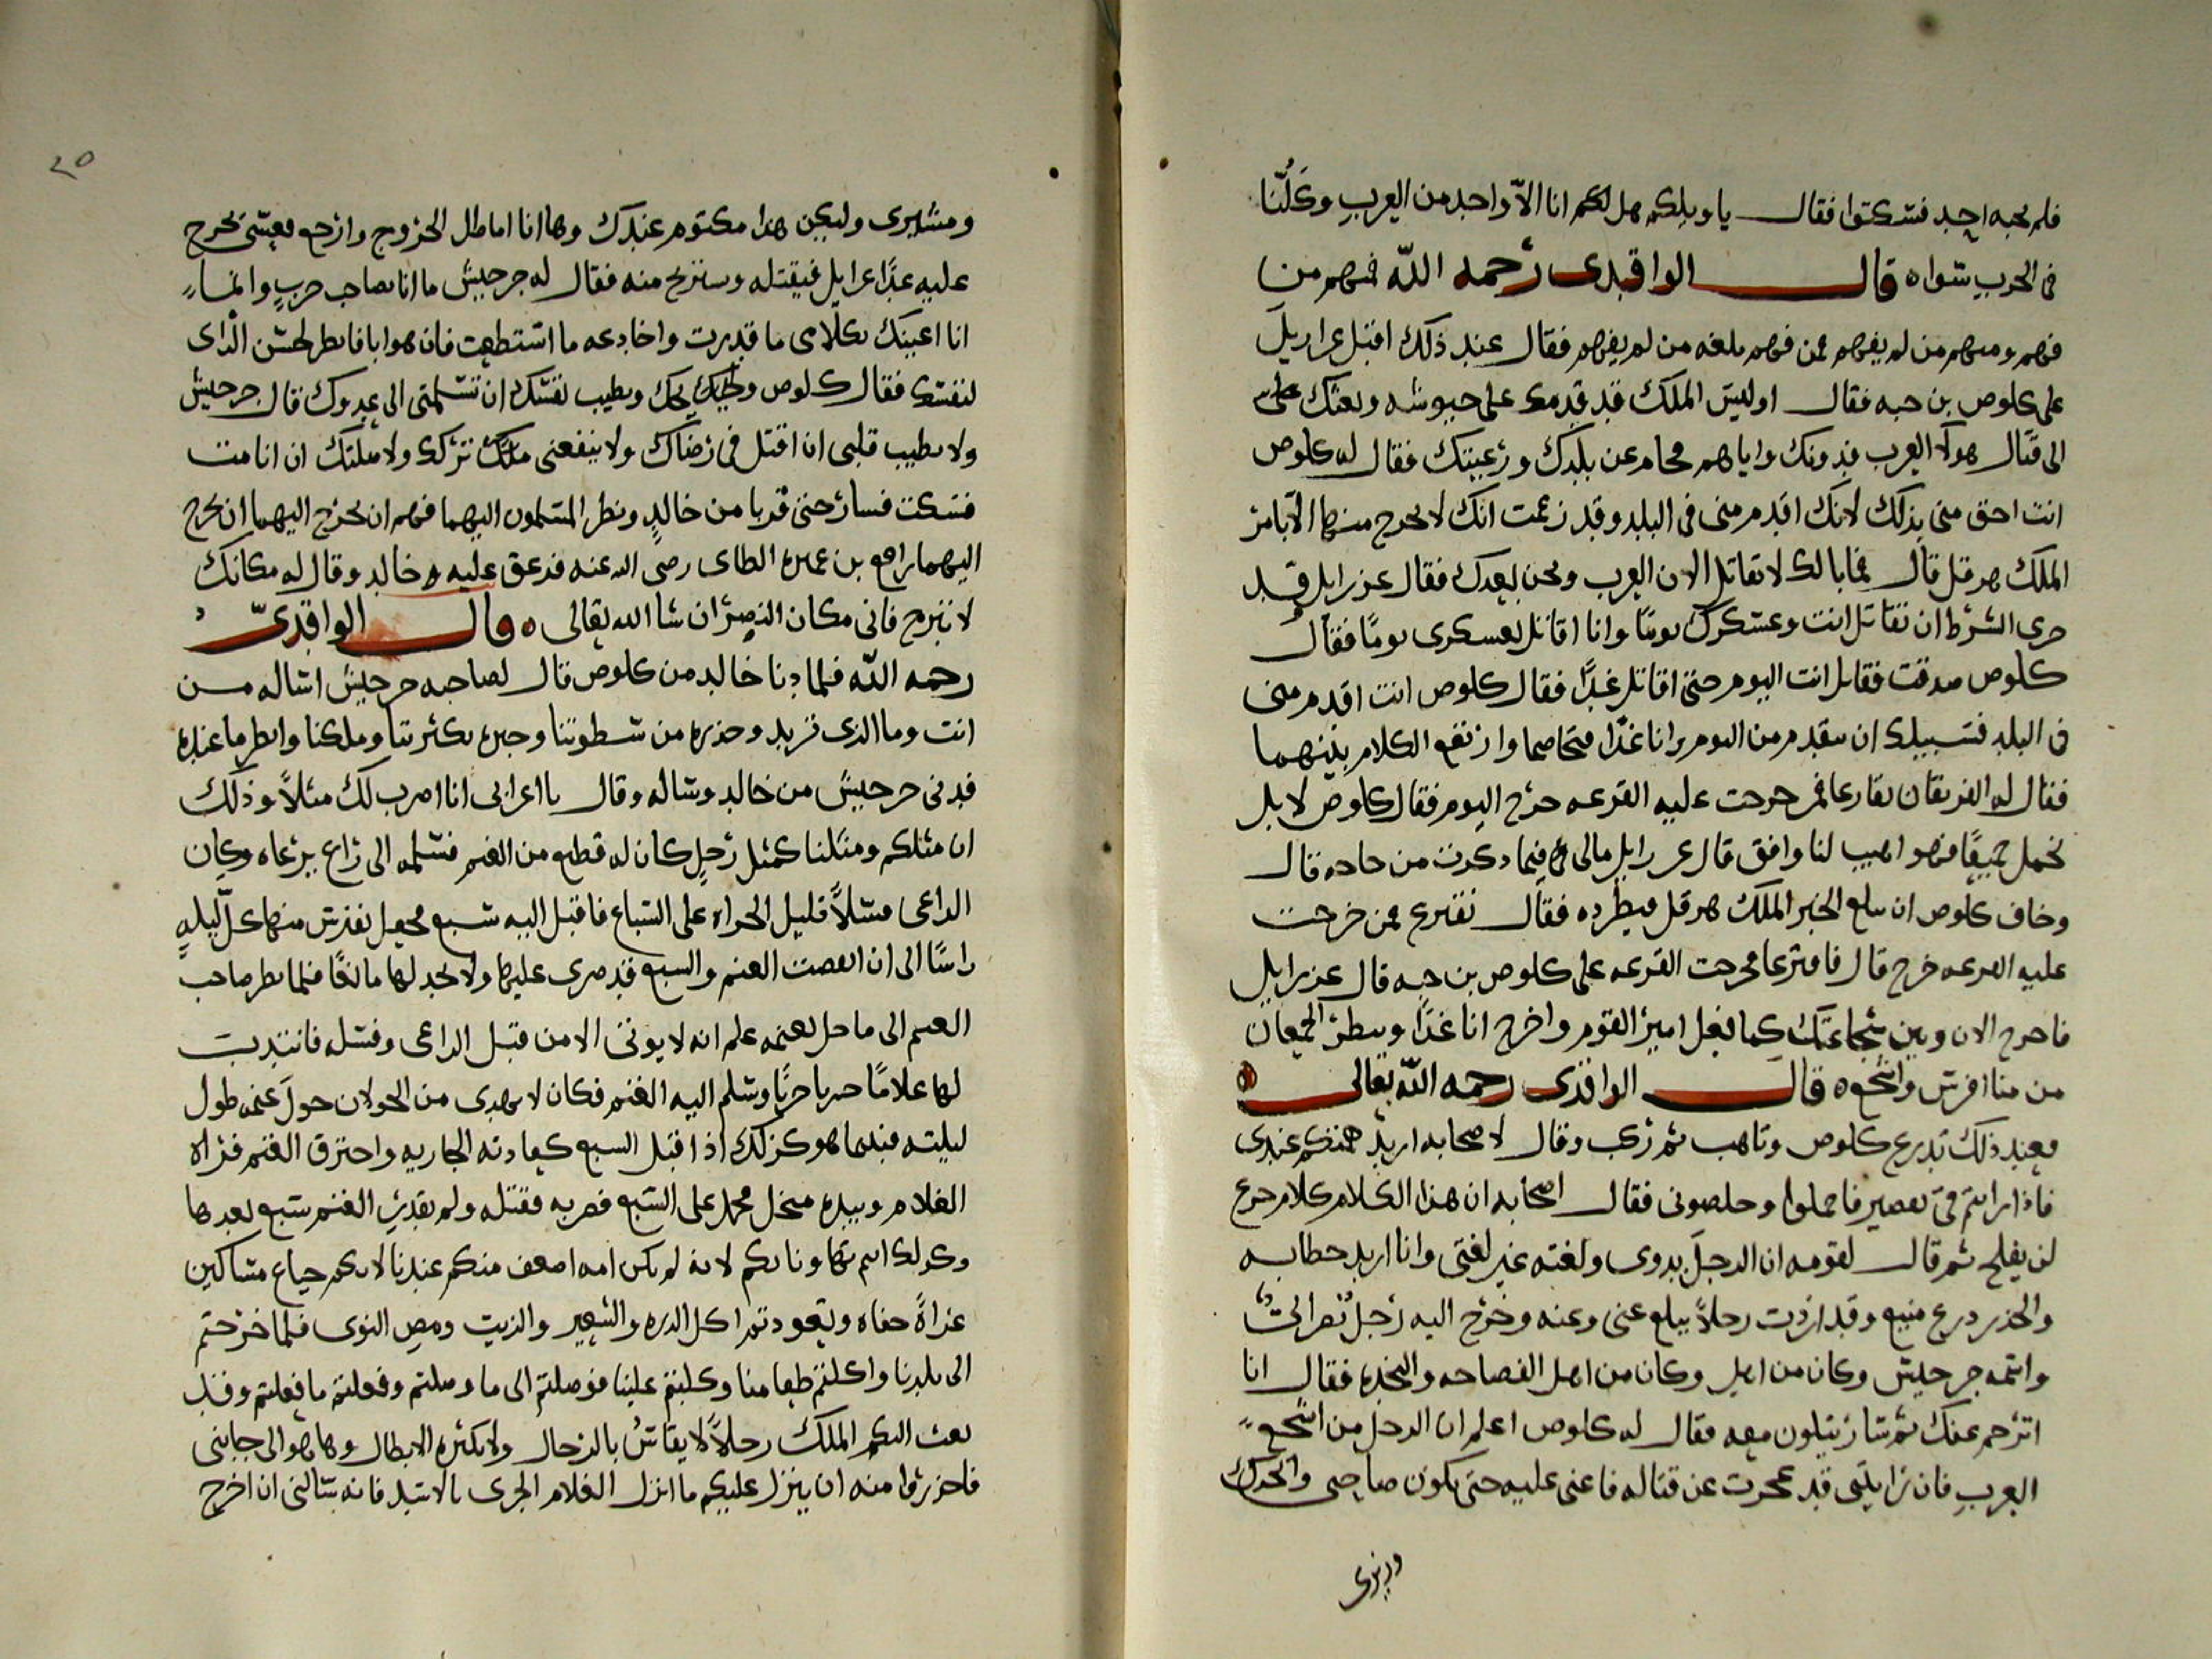 فلم يجبه احد فسكتوا فقال يا ويلكم هل لكم انا الاّ واحد من العرب وكلّنا
فى الحرب سواه قال الواقدى رحمه الله فمنهم من
فهم ومنهم من لم يفهم فمن فهم بلغه من لم يفهم فقال عند ذلك اقبل عزازيل
على كلوص بن حبه فقال اوليس الملك قد قدمك على جيوشه وبعثك على
الى قتال هولآ العرب فدونك واياهم محام عن بلدك ورعيتك فقال له كلوص
انت احق منى بذلك لانك اقدم منى فى البلد وقد زعمت انك لا تخرج منها الا بامر
الملك هرقل قال فما بالك لا تقاتل الان العرب ونحن بعدك فقال عزرايل قد
جرى الشرط ان تقاتل انت وعسكرك يومًا وانا اقاتل بعسكرى يومًا فقال
كلوص صدقت فقاتل انت اليوم حتى اقاتل غدًا فقال كلوص انت اقدم منى
فى البلد فسبيلك ان تتقدم من اليوم وانا غدًا فتخاصما وارتفع الكلام بينهما
فقال له الفريقان تقارعا فمن خرجت عليه القرعه خرج اليوم فقال كلوص لا بل
نحمل جميعًا فهو اهيب لنا وافق قال عزرايل مالى فيما ذكرت من حاجه قال
وخاف كلوص ان يبلغ الخبر الملك هرقل فيطرده فقال نقترع فمن خرجت
عليه القرعه خرج قال فاقترعا فخرجت القرعه على كلوص بن حبه قال عزرايل
فاخرج الان وبين شجاعتك كما فعل امير القوم واخرج انا غدًا وينظر الجمعان
من منا افرس واشجع ه قال الواقدى رحمه الله تعالى
فعند ذلك تدرع كلوص وتاهب ثم ركب وقال لاصحابه اريد همتكم عندى
فاذا رايتم فى تقصير فاحملوا وخلصونى فقال اصحابه ان هذا الكلام كلام جزع
لن يفلح ثم قال لقومه ان الرجل بدوى ولغته غير لغتى وانا اريد خطابه
والحذر درع منيع وقد اردت رجلاً يبلغ عنى وعنه وخرج اليه رجل نصرانى
واسمه جرجيش وكان من اهل وكان من اهل الفصاحه والنجده فقال انا
اترجم عنك ثم سار يتيلون معه فقال له كلوص اعلم ان الرجل من اشجع
العرب فان رايتنى قد عجزت عن قتاله فاعنى عليه حتى تكون صاحبى
وديرى
٢٥
ومشيرى وليكن هذا مكتوم عندك وها انا اماطل الخروج وارجع فعسى يخرج
عليه غدًا عزايل فيقتله ونستريح منه فقال له جرجيش ما انا بصاحب حربٍ وانما
انا اعينك بكلامى ما قدرت واخادعه ما استطعت فان هو ابا فانظر لحسن الراى
لنفسك فقال كلوص ويحك وتطيب نفسك ان تسلمنى الى عدوك قال جرجيش
ولا يطيب قلبى ان اقتل فى رضاك ولا ينفعنى ملكك ولا ملتك ان انا مت
فسكت فسار حتى قربا من خالدٍ ونظر المسلمون اليهما فهم ان يخرج اليهما ان يخرج
اليهما رافع بن عميره الطاى رضى الله عنه فزعق عليه خالد وقال له مكانك
لا تبرح فانى مكان النصر ان شا الله تعالى ه وقال الواقدىّ
رحمه الله فلما دنا خالد من كلوص قال لصاحبه جرجيش اساله مـن
انت وما الذى تريد وحذره من سطوتنا وخبره بكثرتنا وملكنا وانظر ما عنده
فدنى جرجيش من خالد وساله وقال يا اعرابى انا اضرب لك مثلاً وذلك
ان مثلكم ومثلنا كمثل رجلٍ كان له قطيع من الغنم فسلمه الى راعٍ يرعاه وكان
الراعى فشلاً قليل الجراه على السباع فاقبل اليه سبع فجعل يفترس منها كل ليلهٍ
راسًا الى ان انقضت الغنم والسبع قد ضرى عليها ولا يجد لها مانعًا فلما نظر صاحب
الغنم الى ما حل بغنمه علم انه لا يوتى الا من قبل الراعى وفشله فانتدب
لها غلامًا حربا جريًا وسلم اليه الغنم فكان لا يهدى من الجولان حول غنمه طول
ليلته فبينما هو كذلك اذ اقبل السبع كعادته الجاريه واخترق الغنم فراه
الغلام وبيده منجل فحمل على السبع فضربه فقتله ولم يقدر الغنم سبع بعدها
وكذلك انتم تهاونا بكم لانه لم تكن امه اضعف منكم عندنا لانكم جياع مساكين
عراةً حفاه وتعودتم اكل الذره والشعير والزيت ومص النوى فلما خرجتم
الى بلدنا واكلتم طعامنا وكلبتم علينا فوصلتم الى ما وصلتم وفعلتم ما فعلتم وقد
بعث اليكم الملك رجلاً لا يقاس بالرجال ولا يكثره الابطال وها هو الى جانبى
فاحذروا منه ان ينزل عليكم ما انزل الغلام الجرى بالاسد فانه سالنى ان اخرج